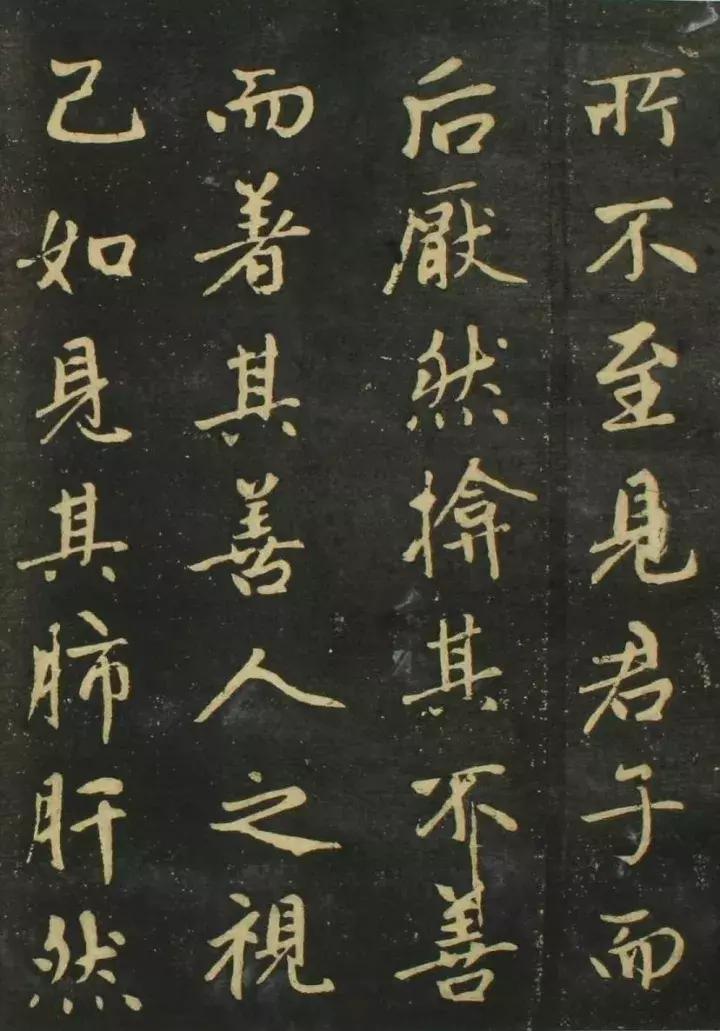 所不至見君子而
后厭然揜其不善
而著其善人之視
己如見其肺肝然